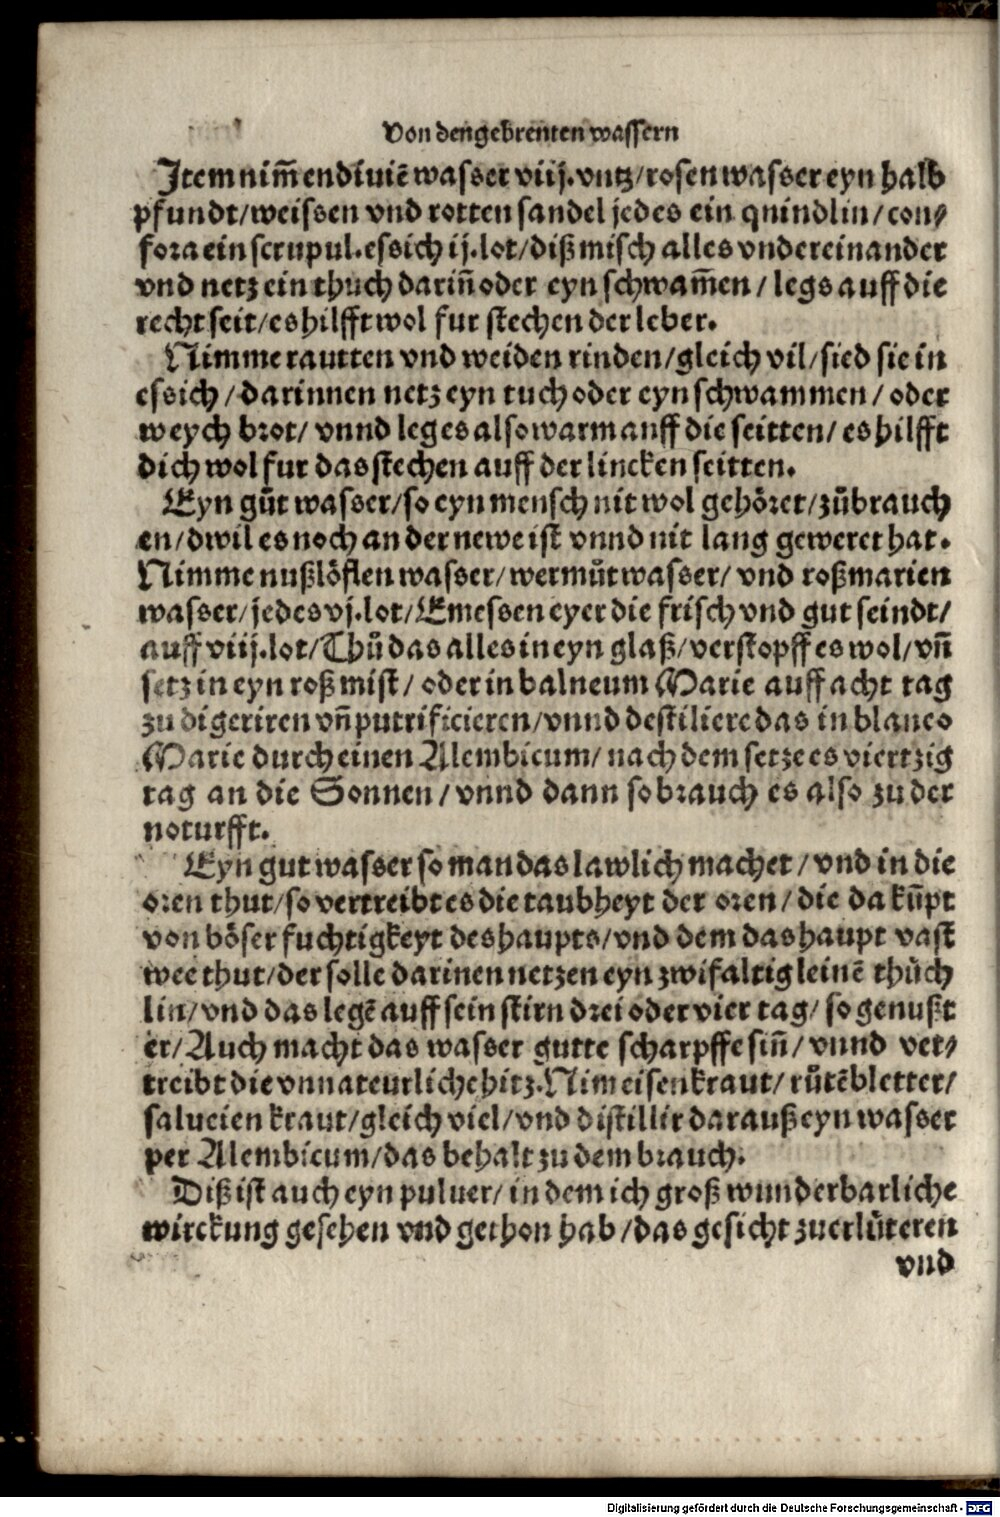 Von den gebrenten wassern
Item nim̃ endiuiẽ wasser viij. vntz/ rosen wasser eyn halb
pfundt/ weissen vnd rotten sandel jedes ein quindlin/ con⸗
fora ein scrupul. essich ij. lot/ diß misch alles vndereinander
vnd netz ein thuch dariñ oder eyn schwam̃en/ legs auff die
recht seit/ es hilfft wol fur stechen der leber.
Nimme rautten vnd weiden rinden/ gleich vil/ sied sie in
essich/ darinnen netz eyn tuch oder eyn schwammen/ oder
weych brot/ vnnd leg es also warm auff die seitten/ es hilfft
dich wol fur das stechen auff der lincken seitten.
Eyn gůt wasser/ so eyn mensch nit wol gehöret/ zůbrauch
en/ dwil es noch an der newe ist vnnd nit lang geweret hat.
Nimme nußlöflen wasser/ wermůt wasser/ vnd roßmarien
wasser/ jedes vj. lot/ Emessen eyer die frisch vnd gut seindt/
auff viij. lot/ Thů das alles in eyn glaß/ verstopff es wol/ vñ
setz in eyn roß mist/ oder in balneum Marie auff acht tag
zu digeriren vñ putrificieren/ vnnd destiliere das in blaneo
Marie durch einen Alembicum/ nach dem setze es viertzig
tag an die Sonnen/ vnnd dann so brauch es also zu der
noturfft.
Eyn gut wasser so man das lawlich machet/ vnd in die
oren thut/ so vertreibt es die taubheyt der oren/ die da kům̃pt
von böser fuchtigkeyt des haupts/ vnd dem das haupt vast
wee thut/ der solle darinen netzen eyn zwifaltig leinẽ thůch
lin/ vnd das legẽ auff sein stirn drei oder vier tag/ so genußt
er/ Auch macht das wasser gutte scharpffe siñ/ vnnd ver⸗
treibt die vnnateurliche hitz. Nim eisenkraut/ růtẽ bletter/
salucien kraut/ gleich viel/ vnd distillir darauß eyn wasser
per Alembicum/ das behalt zu dem brauch.
Diß ist auch eyn puluer/ in dem ich groß wunderbarliche
wirckung gesehen vnd gethon hab/ das gesicht zuerlůteren
vnd
Digitalisierung gefördert durch die Deutsche Forschungsgemeinschaft - DFG